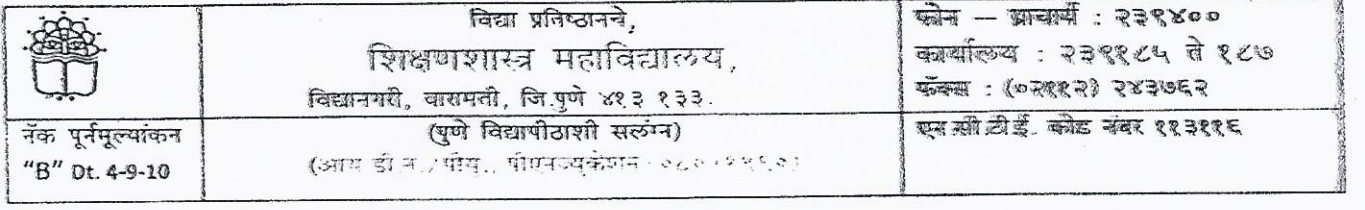 विद्या प्रतिष्ठानचे,
शिक्षणशास्त्र महाविद्यालय,
विद्यानगरी, बारामती, जि.पुणे ४१३ १३३.
फोन – प्राचार्य : २३९४००
कार्यालय : २३९१८५ ते १८७
फॅक्स : (०२११२) २४३७६२
नॅक पूर्नमूल्यांकन
"B" Dt. 4-9-10
(पुणे विद्यापीठाशी सलंग्न)
(आय डी नं./
एन.सी.टी.ई. कोड नंबर ११३११६